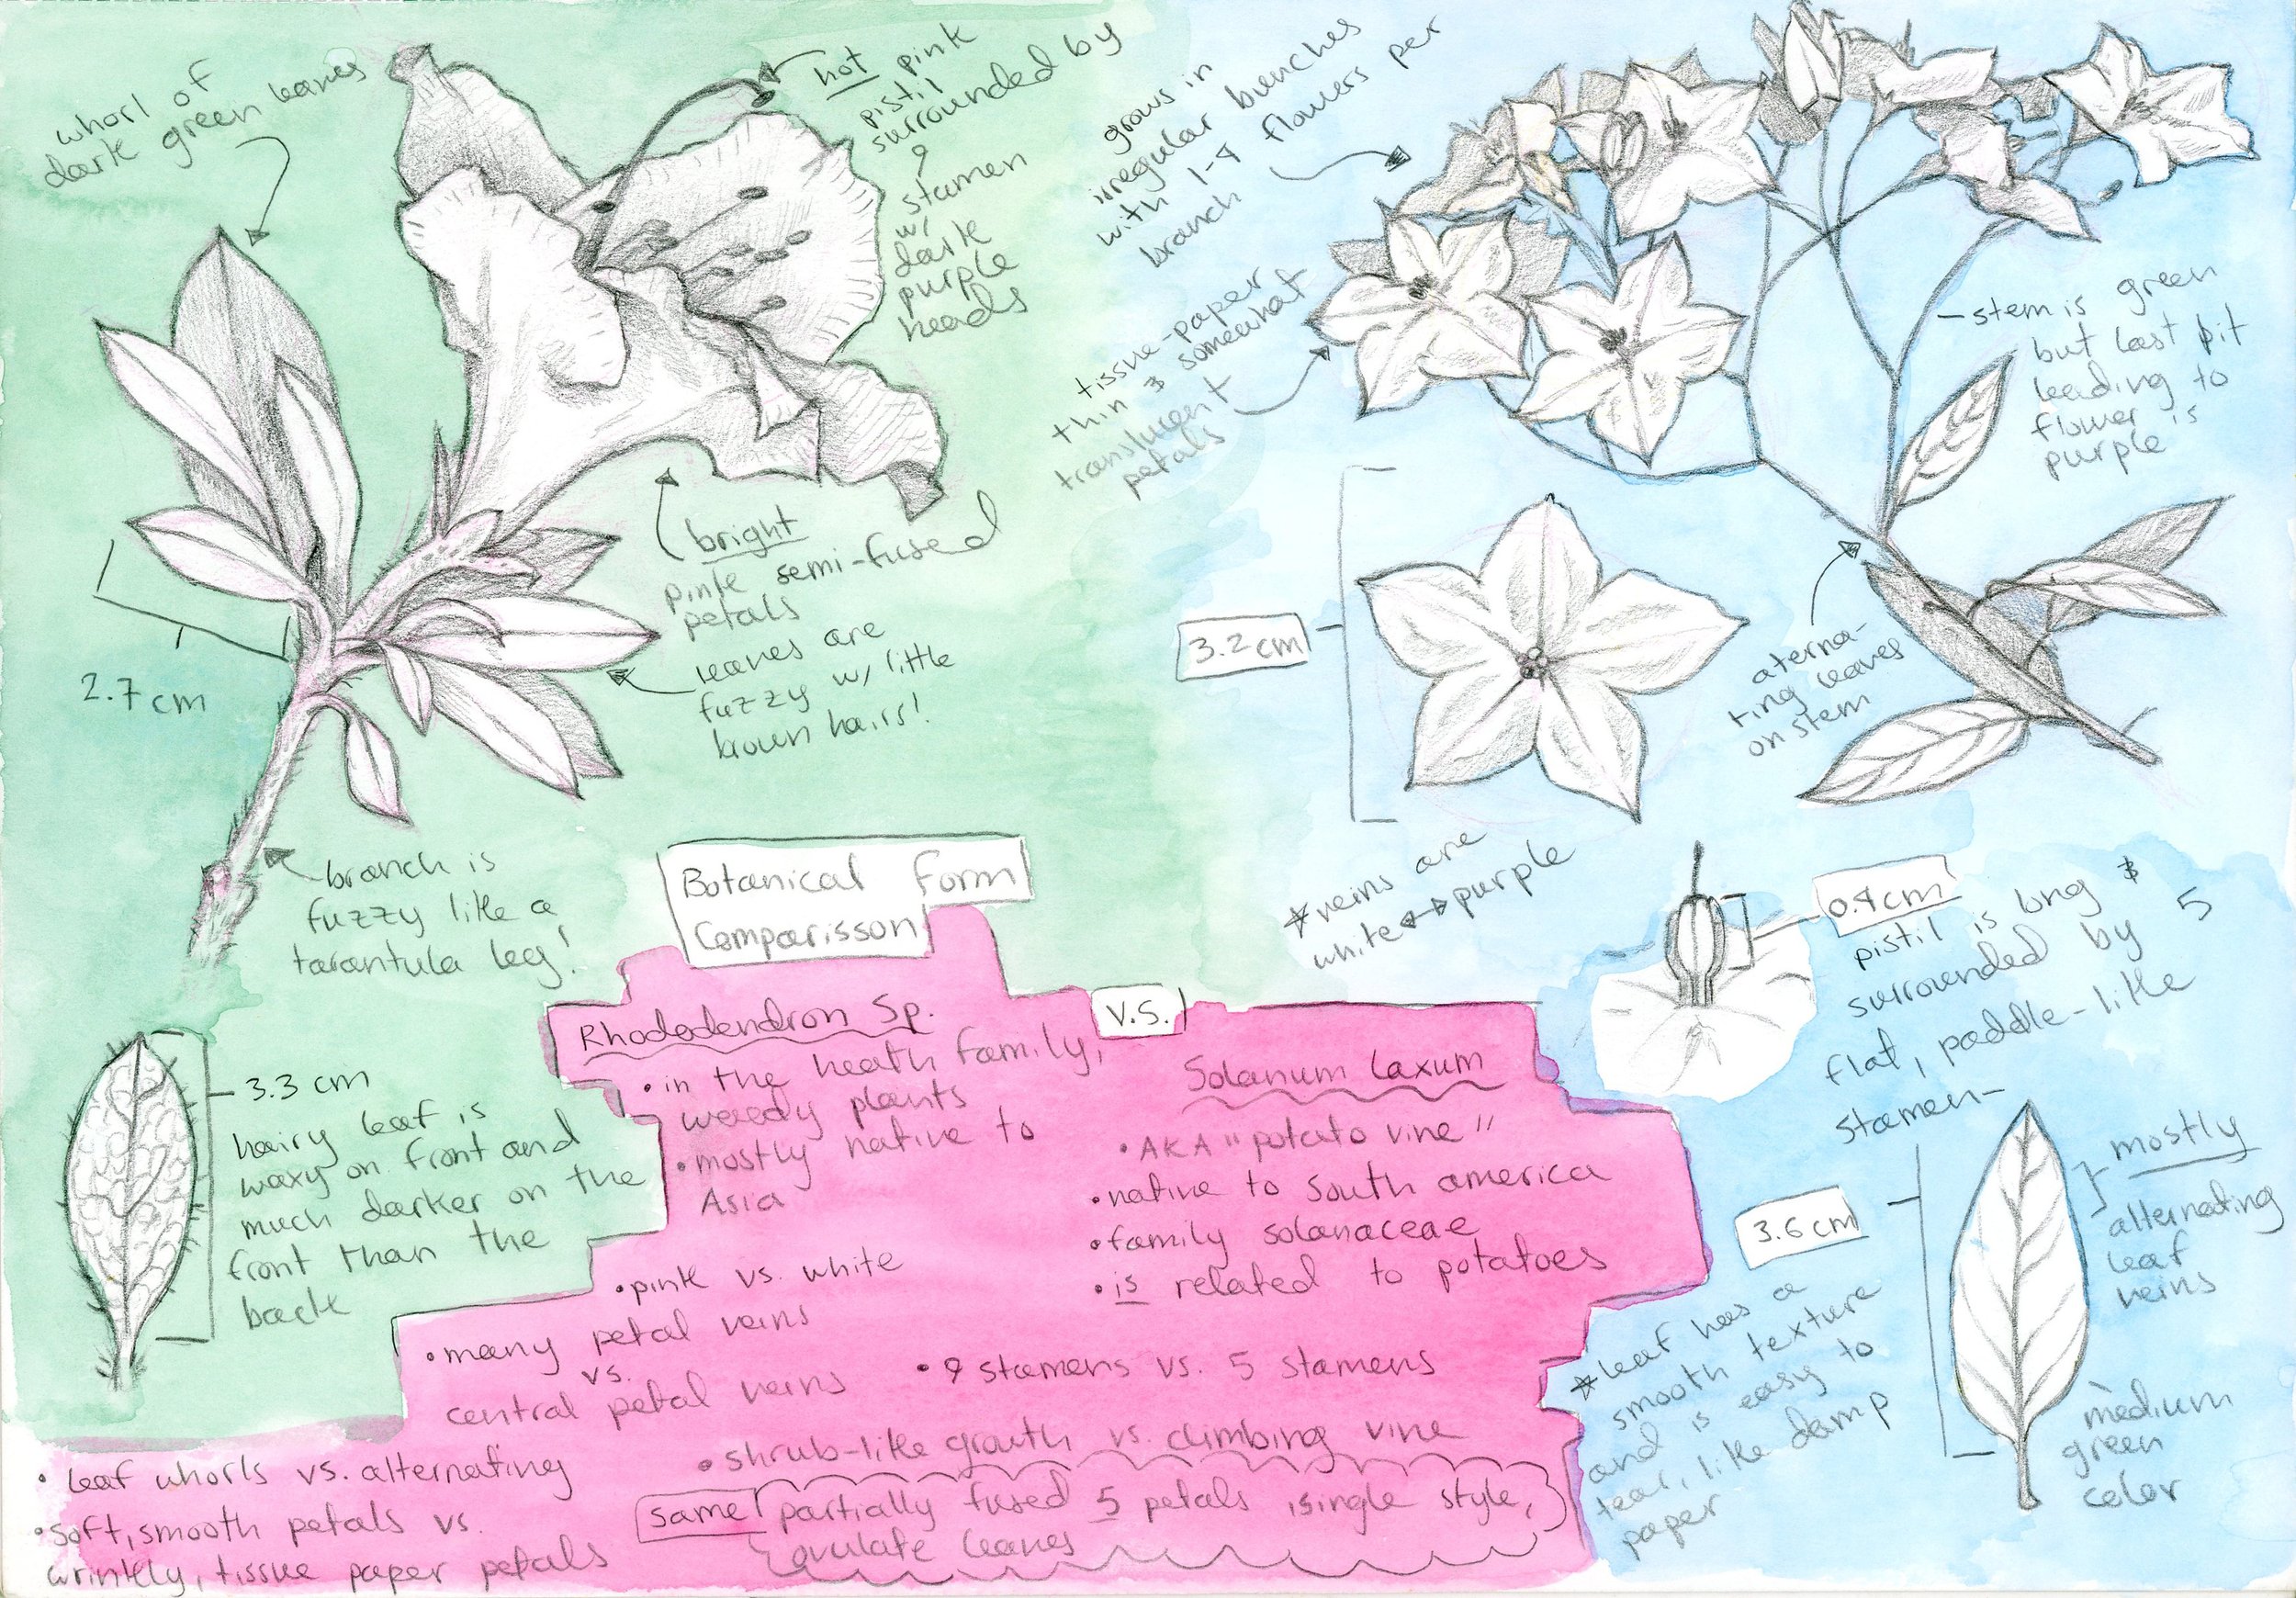 whorl of
dark green leaves
hot pink
pistil
surrounded by
9
stamen
w/
dark
purple
heads
bright
pink semi-fused
petals
leaves are
fuzzy w/ little
brown hairs!
2.7 cm
branch is
fuzzy like a
tarantula leg!
3.3 cm
hairy leaf is
waxy on front and
much darker on the
front than the
back
grows in
irregular bunches
with 1-4 flowers per
branch
tissue-paper
thin & somewhat
translucent
petals
-stem is green
but last bit
leading to
flower is
purple
3.2 cm
aterna-
ting leaves
on stem
*veins are
white↔purple
0.4cm
pistil is long &
surrounded by 5
flat, paddle-like
stamen-
3.6 cm
mostly
alternating
leaf
veins
medium
green
color
*leaf has a
smooth texture
and is easy to
tear, like damp
paper
Botanical Form
Comparisson
Rhododendron Sp.
• in the heath family,
weedy plants
• mostly native to
Asia
v.s.
Solanum Laxum
• AKA "potato vine"
• native to South america
• family solanaceae
• is related to potatoes
• pink vs. white
• many petal veins
vs.
central petal veins
• 9 stamens vs. 5 stamens
• shrub-like growth vs. climbing vine
• leaf whorls vs. alternating
• soft, smooth petals vs.
wrinkly, tissue paper petals
same partially fused 5 petals, single style,
ovulate leaves